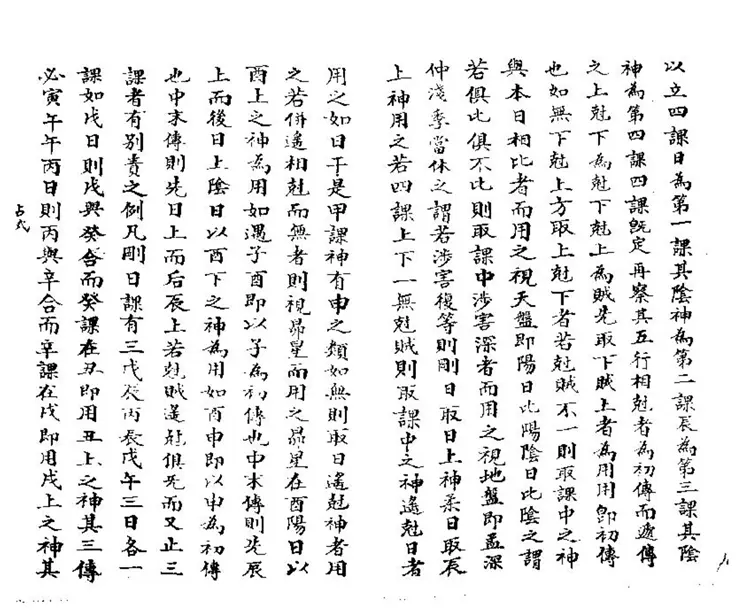 以立四課日為第一課其陰神為第二課辰為第三課其陰
神為第四課四課旣定再察其五行相尅者為初傳而遞傳
之上尅下為尅下尅上為賊先取下賊上者為用用卽初傳
也如無下尅上方取上尅下者若尅賊不一則取課中之神
與本日相比者而用之視天盤即陽日比陽陰日比陰之謂
若俱比俱不比則取課中涉害深者而用之視地盤即孟深
仲淺季當休之謂若涉害復等則剛日取日上神柔日取辰
上神用之若四課上下一無尅賊則取課中之神遙尅日者
用之如日干是甲課神有申之類如無則取日遙尅神者用
之若併遙相尅而無者則視昴星而用之昴星在酉陽日以
酉上之神為用如遇子酉即以子為初傳也中末傳則先辰
上而後日上陰日以酉下之神為用如酉申即以申為初傳
也中末傳則先日上而后辰上若尅賊遙尅俱无而又止三
課者有別責之例凡剛日課有三戊辰丙辰戊午三日各一
課如戊日則戊與癸合而癸課在丑即用丑上之神其三傳
必寅午午丙日則丙與辛合而辛課在戌即用戌上之神其
占式